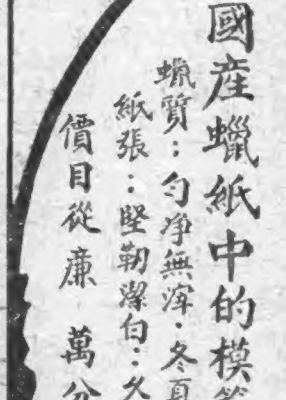 國産蠟紙中的模範
蠟質：勻净無滓．冬夏
紙張：堅韌潔白：久
價目從廉 萬分